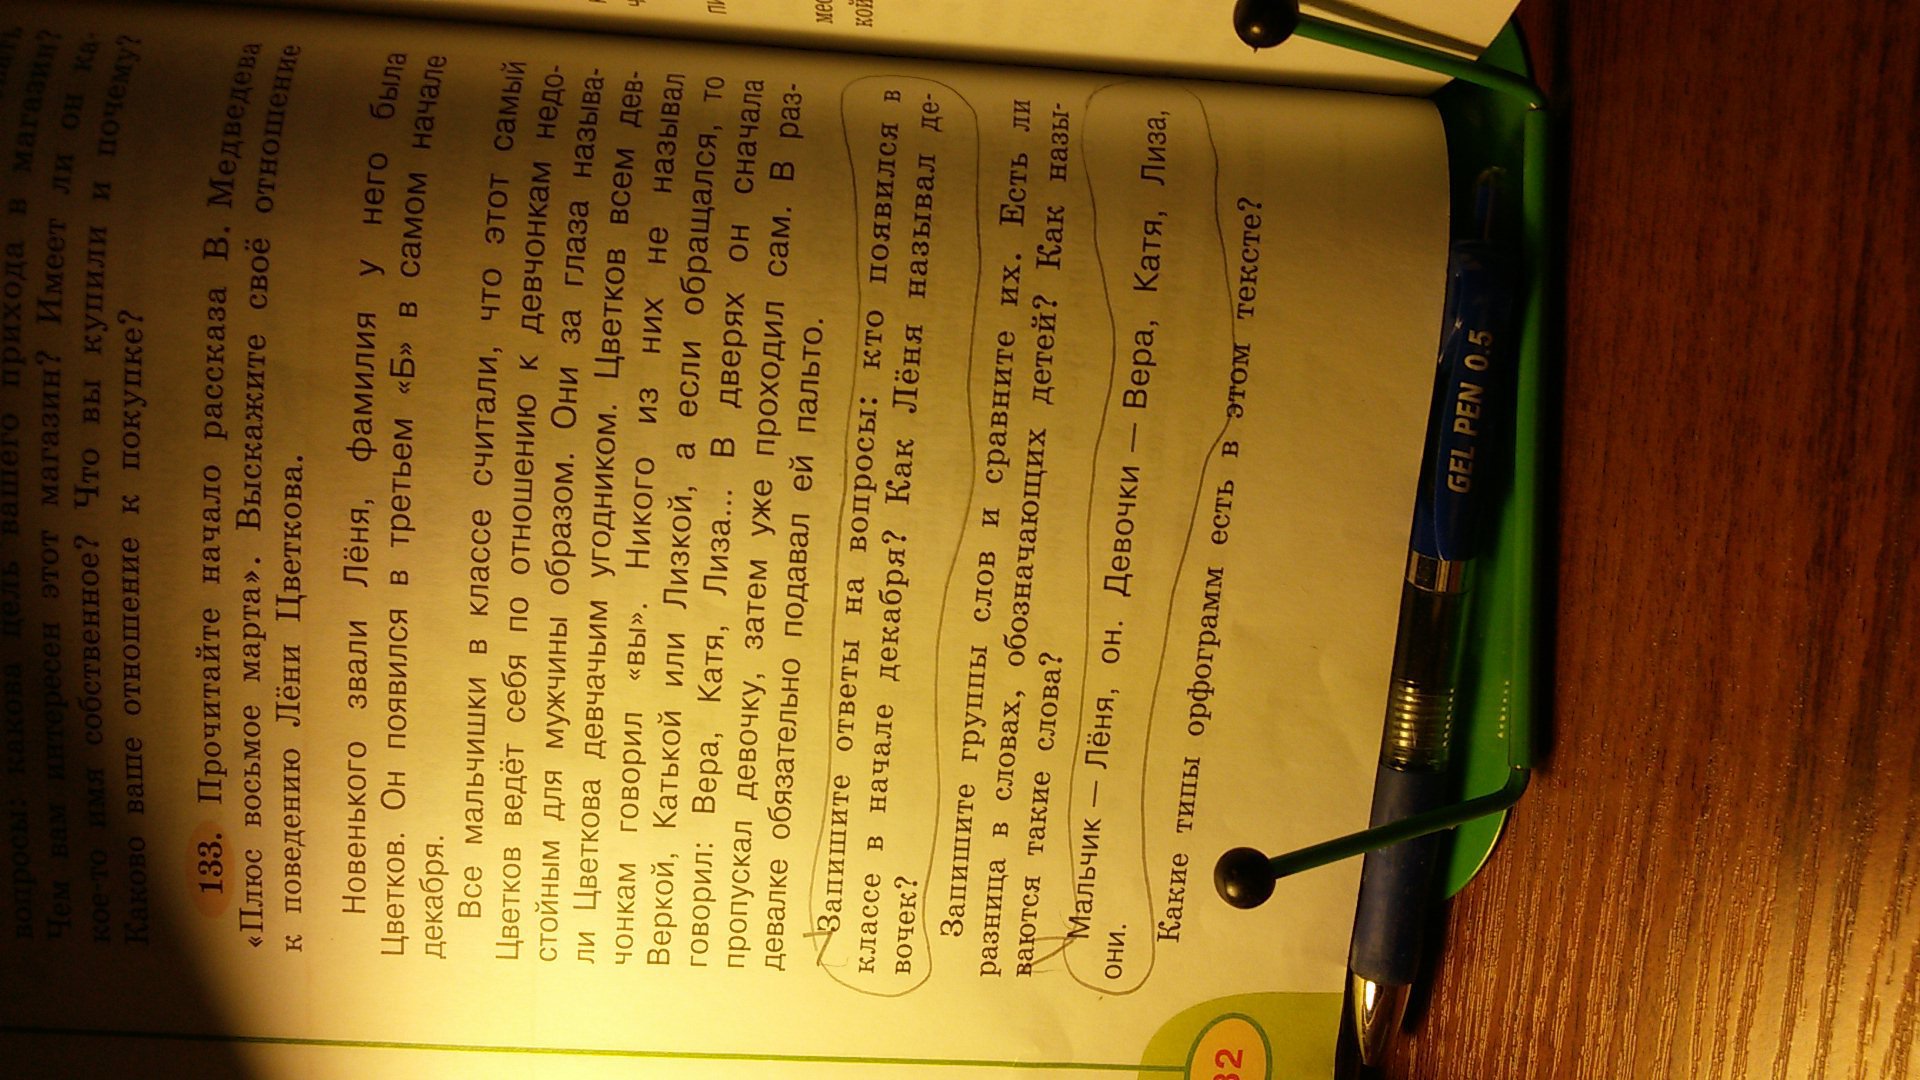 вопросы: какова цель вашего прихода в магазин?
Чем вам интересен этот магазин? Имеет ли он ка-
кое-то имя собственное? Что вы купили и почему?
Каково ваше отношение к покупке?
133. Прочитайте начало рассказа В. Медведева
«Плюс восьмое марта». Выскажите своё отношение
к поведению Лёни Цветкова.
Новенького звали Лёня, фамилия у него была
Цветков. Он появился в третьем «Б» в самом начале
декабря.
Все мальчишки в классе считали, что этот самый
Цветков ведёт себя по отношению к девчонкам недо-
стойным для мужчины образом. Они за глаза называ-
ли Цветкова девчачьим угодником. Цветков всем дев-
чонкам говорил «вы». Никого из них не называл
Веркой, Катькой или Лизкой, а если обращался, то
говорил: Вера, Катя, Лиза... В дверях он сначала
пропускал девочку, затем уже проходил сам. В раз-
девалке обязательно подавал ей пальто.
Запишите ответы на вопросы: кто появился в
классе в начале декабря? Как Лёня называл де-
вочек?
Запишите группы слов и сравните их. Есть ли
разница в словах, обозначающих детей? Как назы-
ваются такие слова?
Мальчик — Лёня, он. Девочки — Вера, Катя, Лиза,
они.
Какие типы орфограмм есть в этом тексте?
32
GEL PEN 0.5